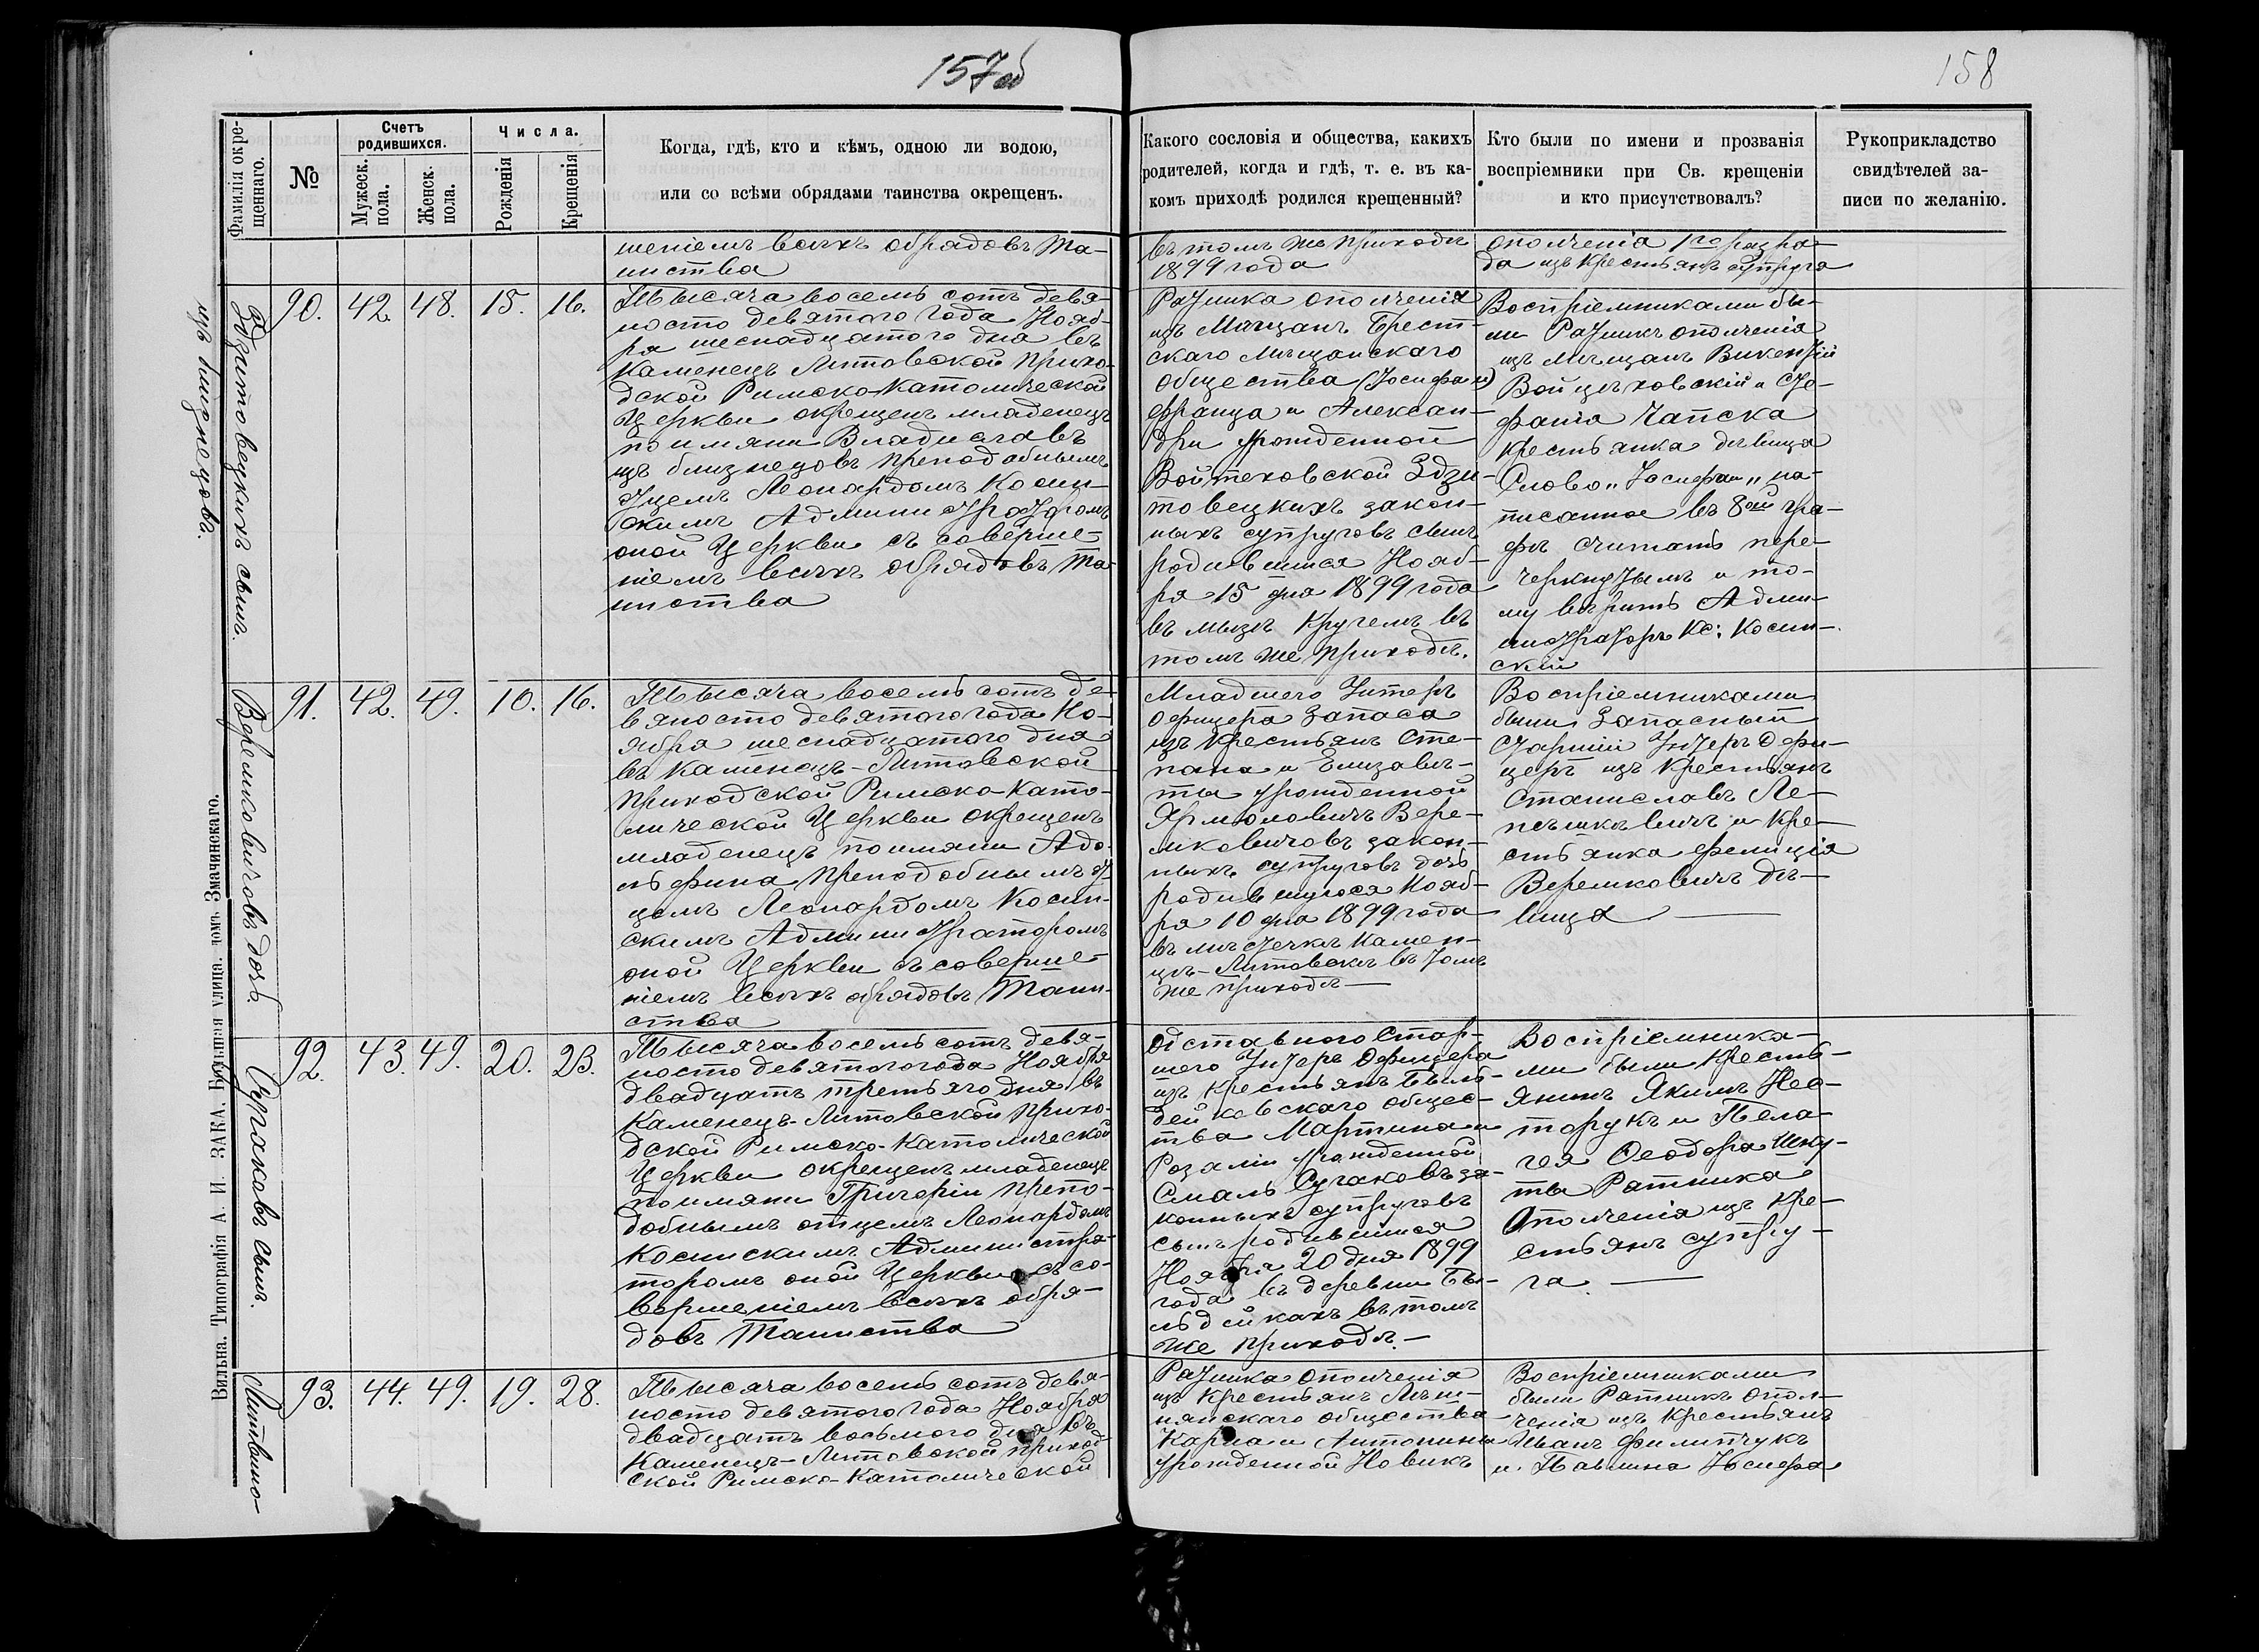 157об
158
Фамилія окре-
щеннаго.
№
Счетъ
родившихся.
Мужеск.
пола.
Женск.
пола.
Числа.
Рожденія
Крещенія
Когда, гдѣ, кто и кѣмъ, одною ли водою,
или со всѣми обрядами таинства окрещенъ.
Какого сословія и общества, какихъ
родителей, когда и гдѣ, т. е. въ ка-
комъ приходѣ родился крещенный?
Кто были по имени и прозванія
воспріемники при Св. крещеніи
и кто присутствовалъ?
Рукоприкладство
свидѣтелей за-
писи по желанію.
шеніемъ всѣхъ обрядовъ Та-
инства
въ томъ же приходѣ
1899 года
ополченія 1го разря-
да изъ крестьянъ супруга
Здзитовецкихъ сынъ.
изъ близнецовъ.
90. 42. 48. 15. 16.
Тысяча восемь сотъ девя-
носто девятого года Нояб-
ря шеснадцатого дня въ
Каменецъ Литовской Прихо-
дской Римско Католической
Церкви окрещенъ младенецъ
по имяни Владиславъ
изъ близнецовъ преподобнымъ
Отцемъ Леонардомъ Косин-
скимъ Администраторомъ
оной Церкви съ соверше-
ніемъ всѣхъ обрядовъ Та-
инства
Ратника ополченія
изъ Мѣщанъ Брест-
скаго мѣщанскаго
общества (Іосифаи)
Франца и Алексан-
дри урожденной
Войтеховской Здзи-
товецкихъ закон-
ныхъ супруговъ сынъ
родившійся Нояб-
ря 15 дня 1899 года
въ мызѣ Кругелъ въ
томъ же приходѣ.
Воспріемниками бы-
ли Ратникъ ополченія
изъ мѣщанъ Викентій
Войцѣховскій и Сто-
фанія Чапска
крестьянка дѣвица
Слово „Іосифаи„ на-
писанное въ 8ой гра-
фѣ считать пере-
черкнутымъ и то-
му вѣрить Адми-
нистраторъ Кс: Косин-
скій
Веремковичовъ дочь.
91. 42. 49. 10. 16.
Тысяча восемь сотъ де-
вяносто девятого года Но-
ября шеснадцатого дня
въ Каменецъ-Литовской
Приходской Римско-Като-
лической Церкви окрещенъ
младенецъ по имяни Адо-
льфина преподобнымъ От-
цемъ Леонардомъ Косин-
скимъ Администраторомъ
оной Церкви съ соверше-
ніемъ всѣхъ обрядовъ Таин-
ства
Младшего Унтеръ
офицера запаса
изъ крестьянъ Сте-
пана и Елизаве-
ты урожденной
Ярмоловичъ Вере-
мковичовъ закон-
ныхъ супруговъ дочь
родившуюся Нояб-
ря 10 дня 1899 года
въ мѣстечкѣ Камен-
цѣ-Литовскѣ въ томъ
же приходѣ—
Воспріемниками
были Запасный
Старшій Унтеръ Офи-
церъ изъ крестьянъ
Станиславъ Ле-
пешкевичъ и кре-
стьянка Фелиція
Веремковичъ дѣ-
вица
Сугаковъ сынъ.
92. 43. 49. 20. 23.
Тысяча восемь сотъ девя-
носто девятого года Ноября
двадцать третьяго дня въ
Каменецъ-Литовской Прихо-
дской Римско-Католической
Церкви окрещенъ младенецъ
по имяни Григорій препо-
добнымъ отцемъ Леонардомъ
Косинскимъ Администра-
торомъ оной Церкви съ со-
вершеніемъ всѣхъ обря-
довъ Таинства
Отставного Стар-
шего Унтеръ Офицера
изъ крестьянъ Быль-
дейковскаго общес-
тва Мартина и
Розаліи урожденной
Смаль Сугаковъ за-
конныхъ супруговъ
сынъ родившійся
Ноября 20 дня 1899
года въ деревни Бы-
льдейкахъ въ томъ
же приходѣ.—
Воспріемника-
ми были Кресть-
янинъ Якимъ Нес-
торукъ и Пела-
гея Ѳеодора
Ратника
Ополченія изъ кре-
стьянъ супру-
га.
Литвино-
93. 44. 49. 19. 28.
Тысяча восемь сотъ девя-
носто девятого года Ноября
двадцать восьмого дня въ
Каменецъ-Литовской приход-
ской Римско-Католической
Ратника Ополченія
изъ крестьянъ
общества
Карла и Антонины
урожденной Новикъ
Воспріемниками
были Ратникъ Опол-
ченія изъ крестьянъ
Иванъ Филипчукъ
и Павлина Іосифа
Вильна. Типографія А. И. ЗАКА. Большая улица. домъ Змачинскаго.